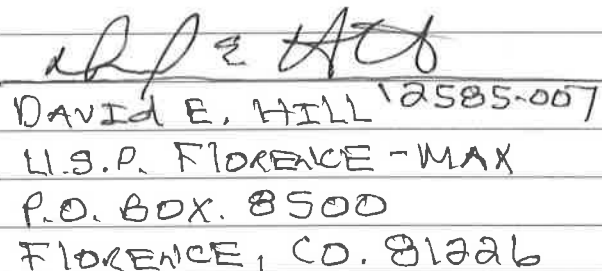 DAVId E. HILL 12585-007
U.S.P. FlORENCE - MAX
P.O. BOX. 8500
FlORENCE, CO. 81226